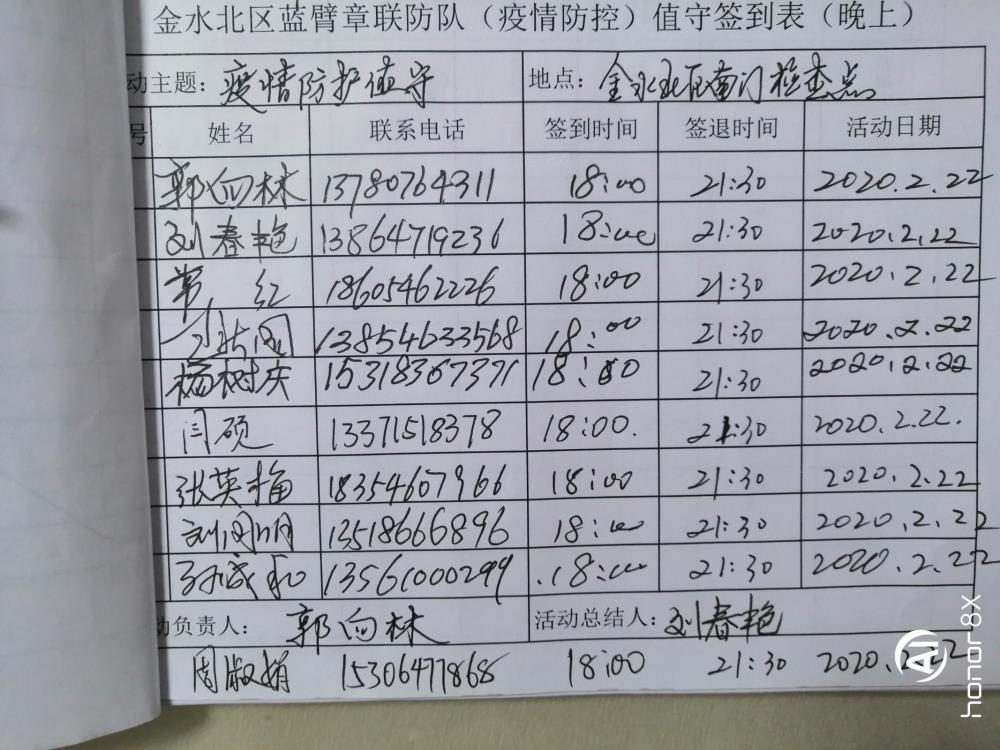 金水北区蓝臂章联防队（疫情防控）值守签到表（晚上）
动主题：疫情防护值守 地点：金水北区南门检查点
号 姓名 联系电话 签到时间 签退时间 活动日期
郭向林 13780764311 18:00 21:30 2020.2.22
刘春艳 13864719236 18:00 21:30 2020.2.22
红 18605462226 18:00 21:30 2020.2.22
13854633568 18:00 21:30 2020.2.22
杨树庆 15318367371 18:00 21:30 2020.2.22
闫硕 13371518378 18:00. 21:30 2020.2.22.
张英梅 18354607966 18:00 21:30 2020.2.22
刘周明 13518666896 18:00 21:30 2020.2.22
13561000299 18:00 21:30 2020.2.22
动负责人：郭向林 活动总结人：刘春艳
周淑娟 15306477868 18:00 21:30 2020.2.22
honor 8X